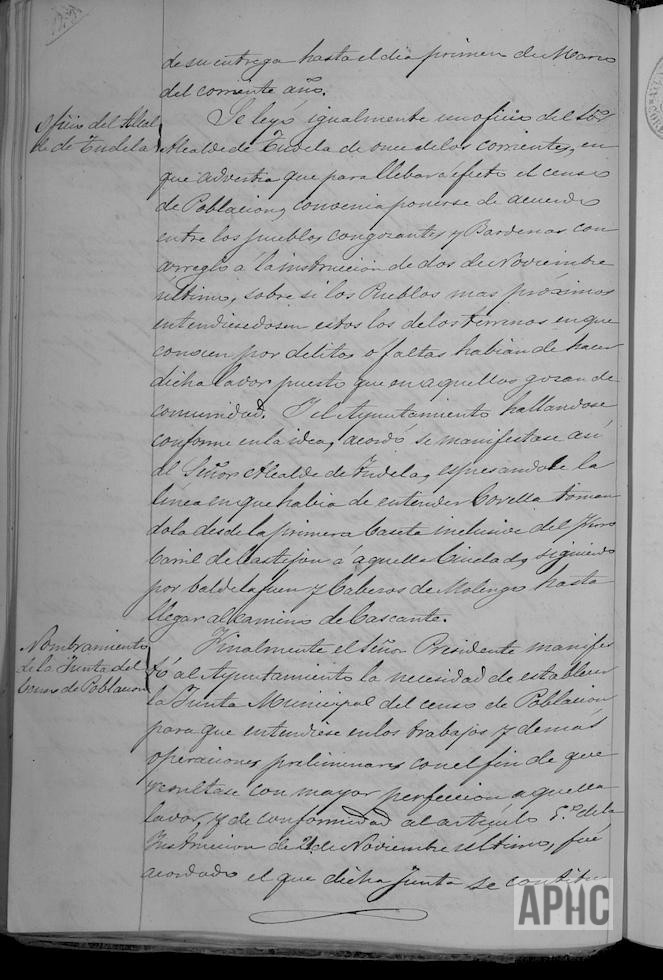 de su entrega hasta el dia primero de Marzo
del corriente año.
Oficio del Alcal
de de Tudela
Se leyó igualmente un oficio del Sor
Alcalde de Tudela de once de los corrientes, en
que advertia que para llebar a efecto el censo
de Poblacion, convenia ponerse de acuerdo
entre los pueblos congozantes y Bardenas con
arreglo á la instruccion de dos de Noviembre
ultimo, sobre si los Pueblos mas próximos
entendiesedosen estos los de los terrenos en que
conocen por delitos ó faltas habian de hacer
dicha lavor puesto que en aquellos gozan de
comunidad. Y el Ayuntamiento hallandose
conforme en la idea, acordó se manifestase asi
al Señor Alcalde de Tudela, espresandole la
linea en que habia de entender Corella toman
dola desde la primera Caseta inclusive del Ferro
Carril de Castejon á aquella Ciudad, siguiendo
por Valdelafuen y Cabezos de Molengo hasta
llegar al camino de Cascante.
Nombramiento
de la Junta del
Censo de Poblacion
Finalmente el Señor Presidente manifes
tó al Ayuntamiento la necesidad de establecer
la Junta Municipal del censo de Poblacion
para que entendiese en los trabajos y demas
operaciones preliminares con el fin de que
resultase con mayor perfeccion aquella
lavor, y de conformidad al artículo 5.º de la
Instruccion de 2 de Noviembre ultimo, fué
acordado el que dicha Junta se constitu
APHC